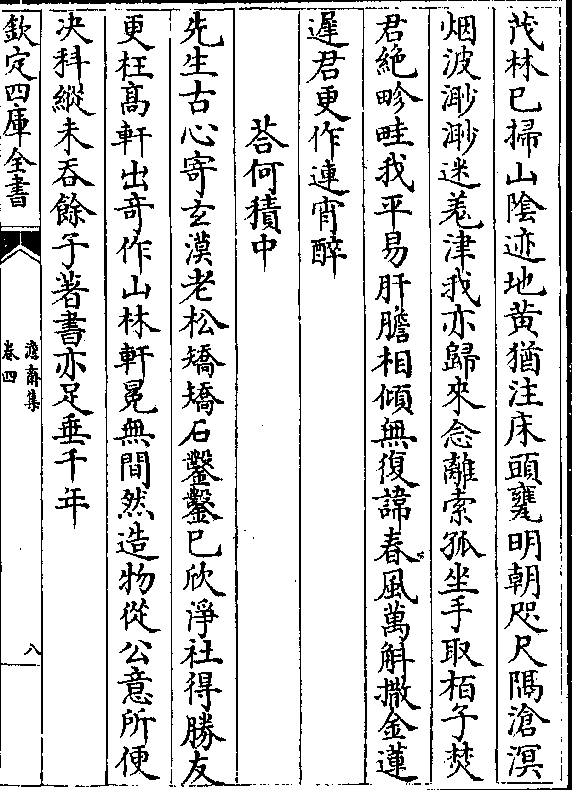 茂林已掃山陰迹地黄猶注床頭甕明朝咫尺隔滄溟
烟波渺渺迷羗津我亦歸來念離索孤坐手取栢子焚
君絶畛畦我平易肝膽相傾無復諱春風萬斛撒金蓮
遲君更作連宵醉
荅何積中
先生古心寄玄漠老松矯矯石鑿鑿已欣淨社得勝友
更枉髙軒出竒作山林軒冕無間然造物從公意所便
决科縱未吞餘子著書亦足垂千年
欽定四庫全書
澹齋集
卷四
八